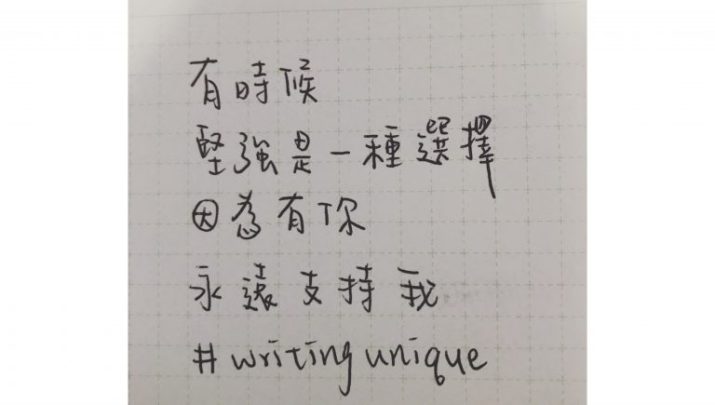 有時候
堅強是一種選擇
因為有你
永遠支持我
#writingunique